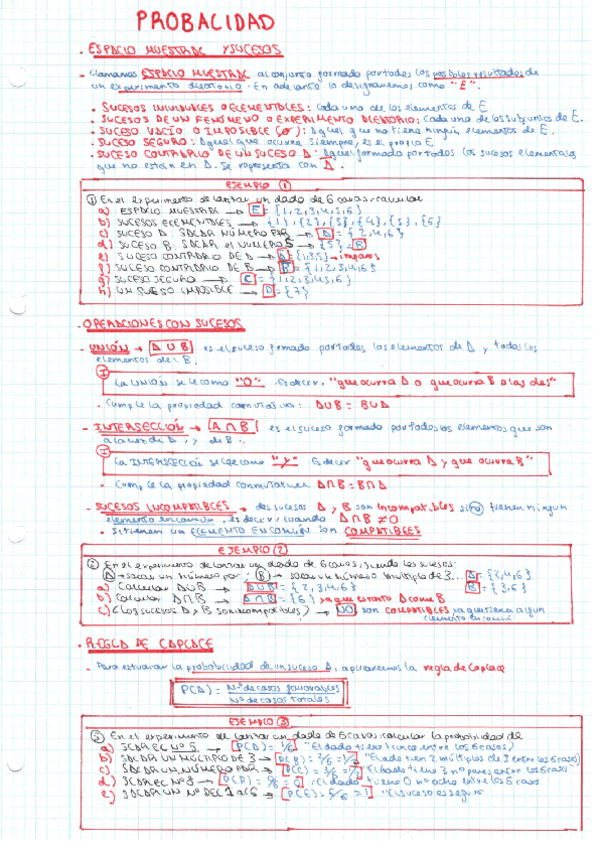 PROBALIDAD
• ESPACIO MUESTRAL Y SUCESOS
- Llamamos ESPACIO MUESTRAL al conjunto formado por todos los posibles resultados de
un experimento aleatorio. En adelante lo designaremos como "E".
• SUCESOS INDIVIDUALES O ELEMENTALES: Cada uno de los elementos de E
• SUCESOS DE UN FENÓMENO O EXPERIMENTO ALEATORIO: Cada uno de los subjuntos de E.
• SUCESO VACÍO O IMPOSIBLE (Ø): Aquel que no tiene ningún elementos de E.
• SUCESO SEGURO: Aquel que ocurre siempre, es el propio E
• SUCESO CONTRARIO DE UN SUCESO A: Aquel formado por todos los sucesos elementales
que no están en A. Se representa con A.
EJEMPLO ①
① En el experimento de lanzar un dado de 6 caras, calcular
a) ESPACIO MUESTRAL → E = {1,2,3,4,5,6}
b) SUCESOS ELEMENTALES → {1}, {2}, {3}, {4}, {5}, {6}
c) SUCESO A: SACAR NÚMERO PAR → A = {2,4,6}
d) SUCESO B: SACAR el NUMERO 5 → {5} = B
e) SUCESO CONTRARIO DE A → A = {1,3,5} → impares
f) SUCESO CONTRARIO DE B → B = {1,2,3,4,6}
g) SUCESO SEGURO → C = {1,2,3,4,5,6}
h) UN SUCESO IMPOSIBLE → D = {7}
• OPERACIONES CON SUCESOS
- UNIÓN → A U B es el suceso formado por todos los elementos de A y todos los
elementos del B.
La UNIÓN se lee como "O". Es decir, "que ocurra A o que ocurra B o las dos"
• Cumple la propiedad conmutativa: AUB = BUA
- INTERSECCIÓN → A ∩ B es el suceso formado por todos los elementos que son
a la vez de A y de B.
La INTERSECCIÓN se lee como "y". Es decir "que ocurra A y que ocurra B"
- Cumple la propiedad conmutativa A∩B = B∩A
- SUCESOS INCOMPATIBLES → dos sucesos A y B son incompatibles si no tienen ningún
elemento en común, es decir, cuando A∩B ≠ Ø
• Si tienen un ELEMENTO EN COMÚN son COMPATIBLES
EJEMPLO ②
② En el experimento de lanzar un dado de 6 caras, siendo los sucesos:
A → sacar un número par; B → sacar un número múltiplo de 3... A = {2,4,6}
a) Calcular AUB → AUB = {2,3,4,6} B = {3,6}
b) Calcular A∩B → A∩B = {6} ya que está en A como B
c) ¿Los sucesos A y B son incompatibles? → NO son COMPATIBLES ya que tienen algún
elemento en común
• REGLA DE LAPLACE
- Para estudiar la probabilidad de un suceso A, aplicaremos la regla de Laplace
P(A) = Nº de casos favorables
Nº de casos totales
EJEMPLO ③
③ En el experimento de lanzar un dado de 6 caras calcular la probabilidad de
a) SACAR EL Nº 5 → P(A) = 1/6 "El dado tiene 1 cinco entre los 6 casos"
b) SACAR UN MÚLTIPLO DE 3 → P(B) = 2/6 = 1/3 "El dado tiene 2 múltiplos de 3 entre los 6 casos"
c) SACAR UN NÚMERO PAR → P(C) = 3/6 = 1/2 "El dado tiene 3 nº pares entre los 6 casos"
d) SACAR EL Nº 8 → P(D) = 0/6 = 0 "El dado tiene 0 nº ocho entre los 6 casos
e) SACAR UN Nº DEL 1 al 6 → P(E) = 6/6 = 1 "El suceso es seguro